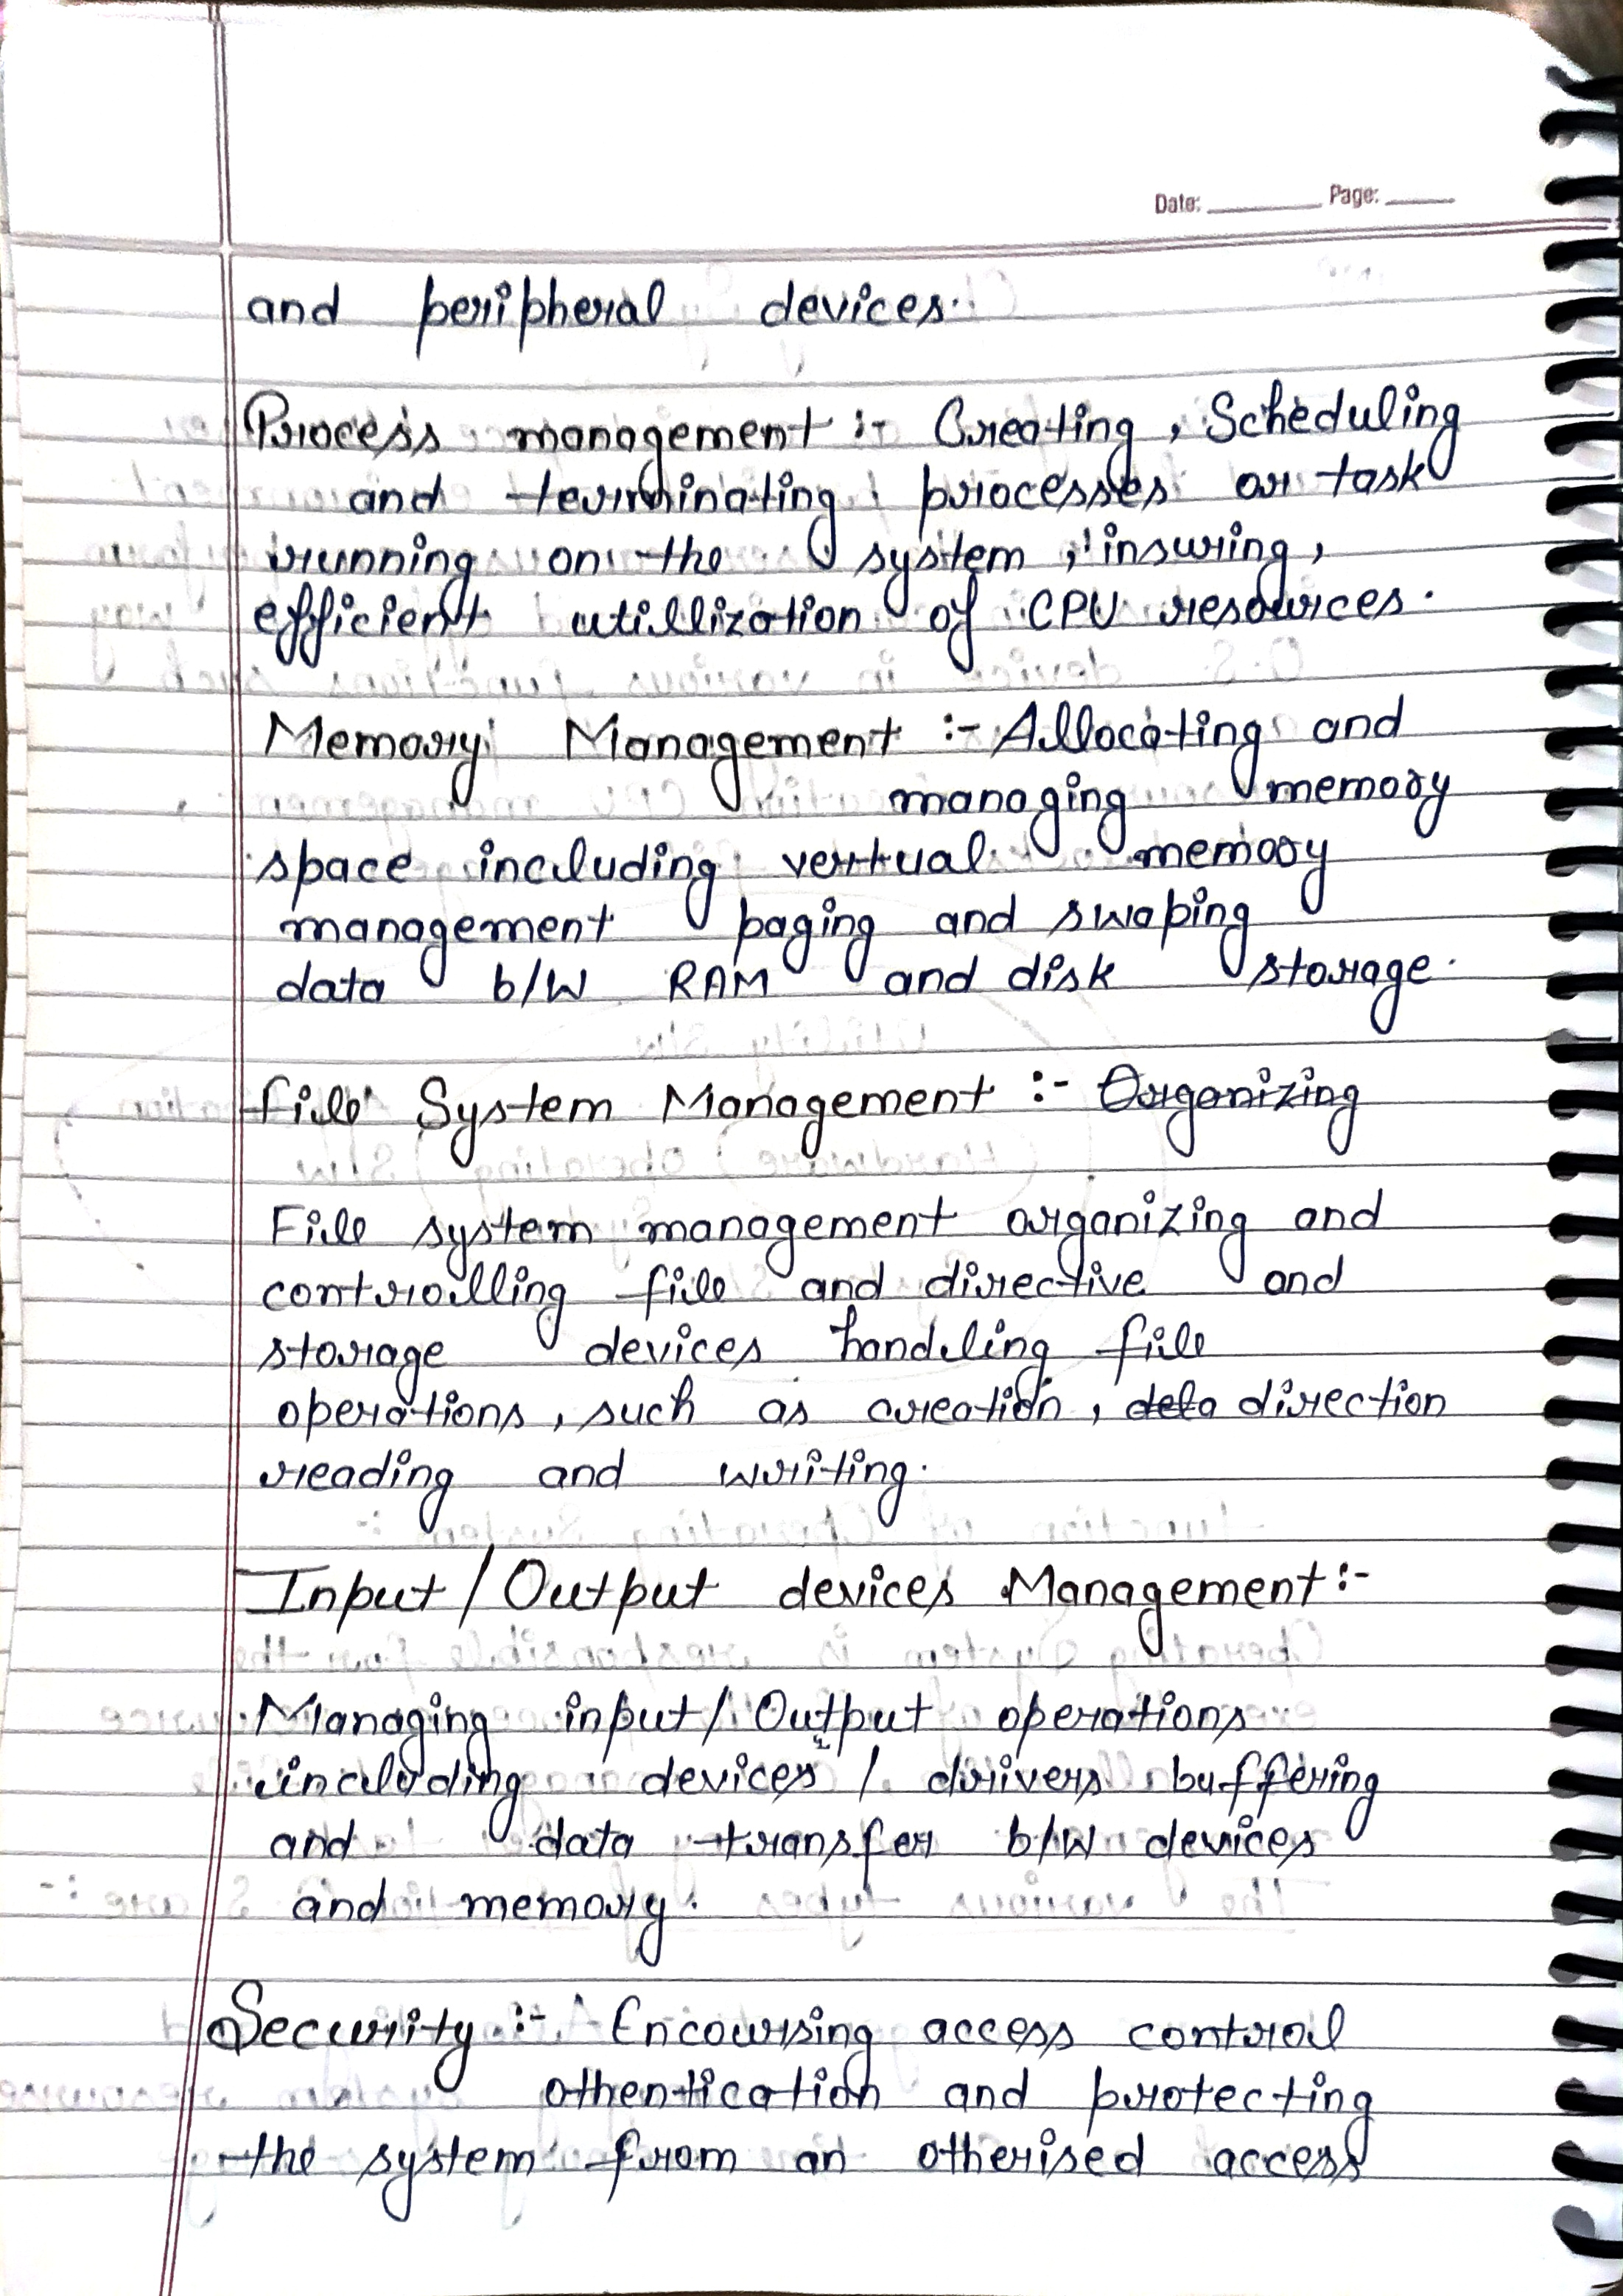 Date: Page:
and peripheral devices.
Process management :- Creating, Scheduling
and terminating processes or task
running on the system, insuring,
efficient utillization of CPU resources.
Memory Management :- Allocating and
managing memory
space including vertual memory
management paging and swaping
data b/w RAM and disk storage.
File System Management :- Organizing
File system management organizing and
controlling file and directive and
storage devices handeling file
operations, such as creation, dele direction
reading and writing.
Input / Output devices Management :-
Managing input / Output operations
including devices / drivers buffering
and data transfer b/w devices
and memory.
Security :- Encoursing access control
othentication and protecting
the system from an otherised access